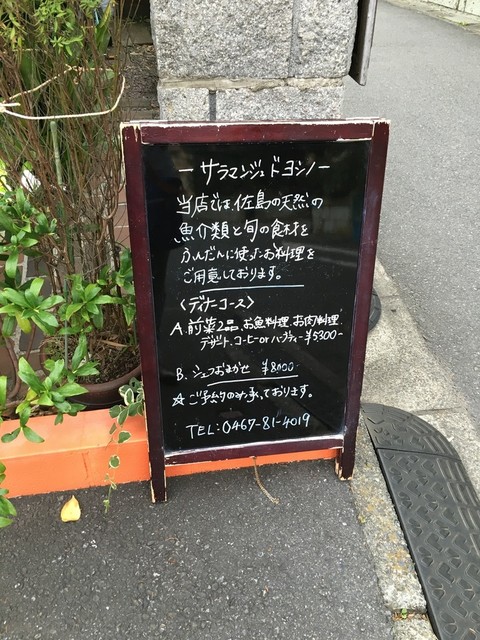 ーサラマンジェ ド ヨシノー
当店では、佐島の天然の
魚介類と旬の食材を
ふんだんに使ったお料理を
ご用意しております。
〈ディナーコース〉
A. 前菜2品、お魚料理、お肉料理
デザート、コーヒー or ハーブティー ¥5300-
B. シェフおまかせ ¥8000-
☆ご予約のみ承っております。
TEL:0467-81-4019